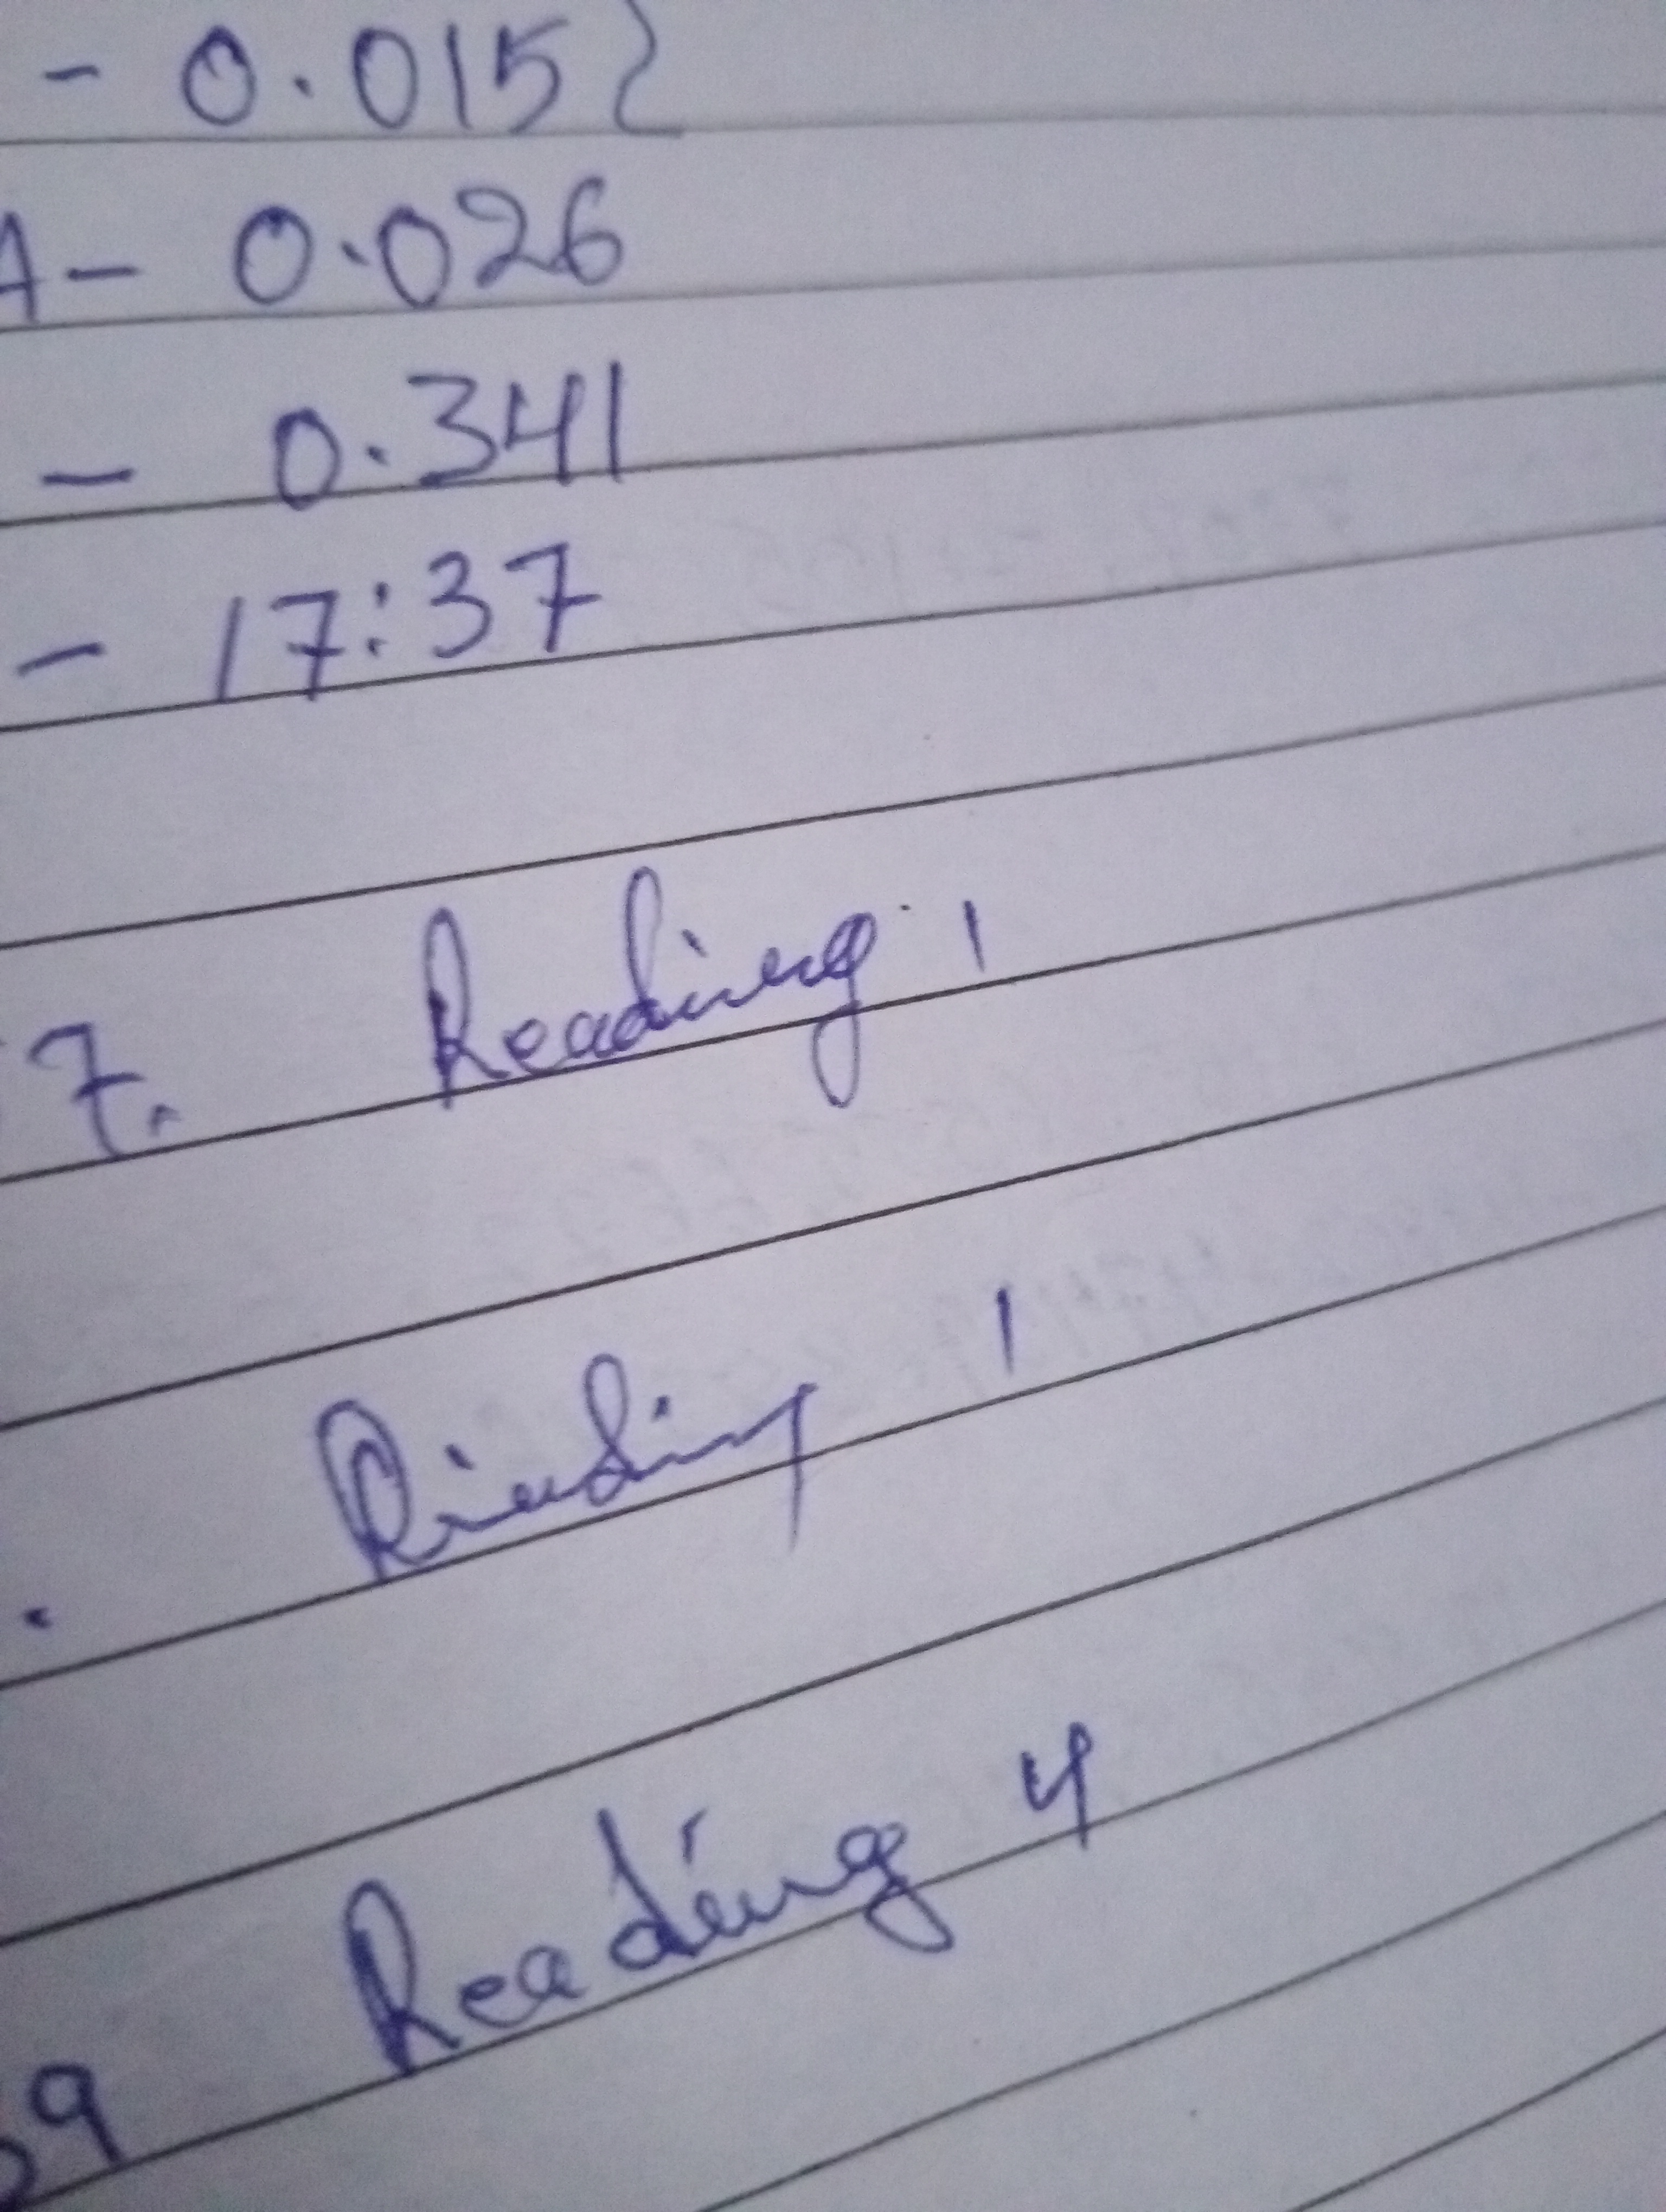 - 0.0152
A - 0.026
- 0.341
- 17:37
7. Reading 1
. Reading 1
9 Reading 4